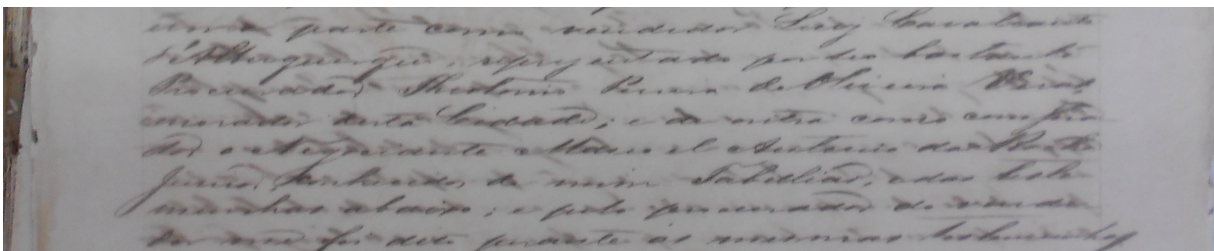 uma parte como vendedor Luiz Cavalcante
d'Albuquerque, representado por seo bastante
Procurador Theotonio Pereira de Oliveira
morador desta Cidade; e de outra como compra
dor o Negociante Manoel Antonio da Costa
Junior, conhecidos de mim Tabelliaõ, e das teste
munhas abaixo; e pelo procurador do vende
dor me foi dito perante as mesmas testemunhas